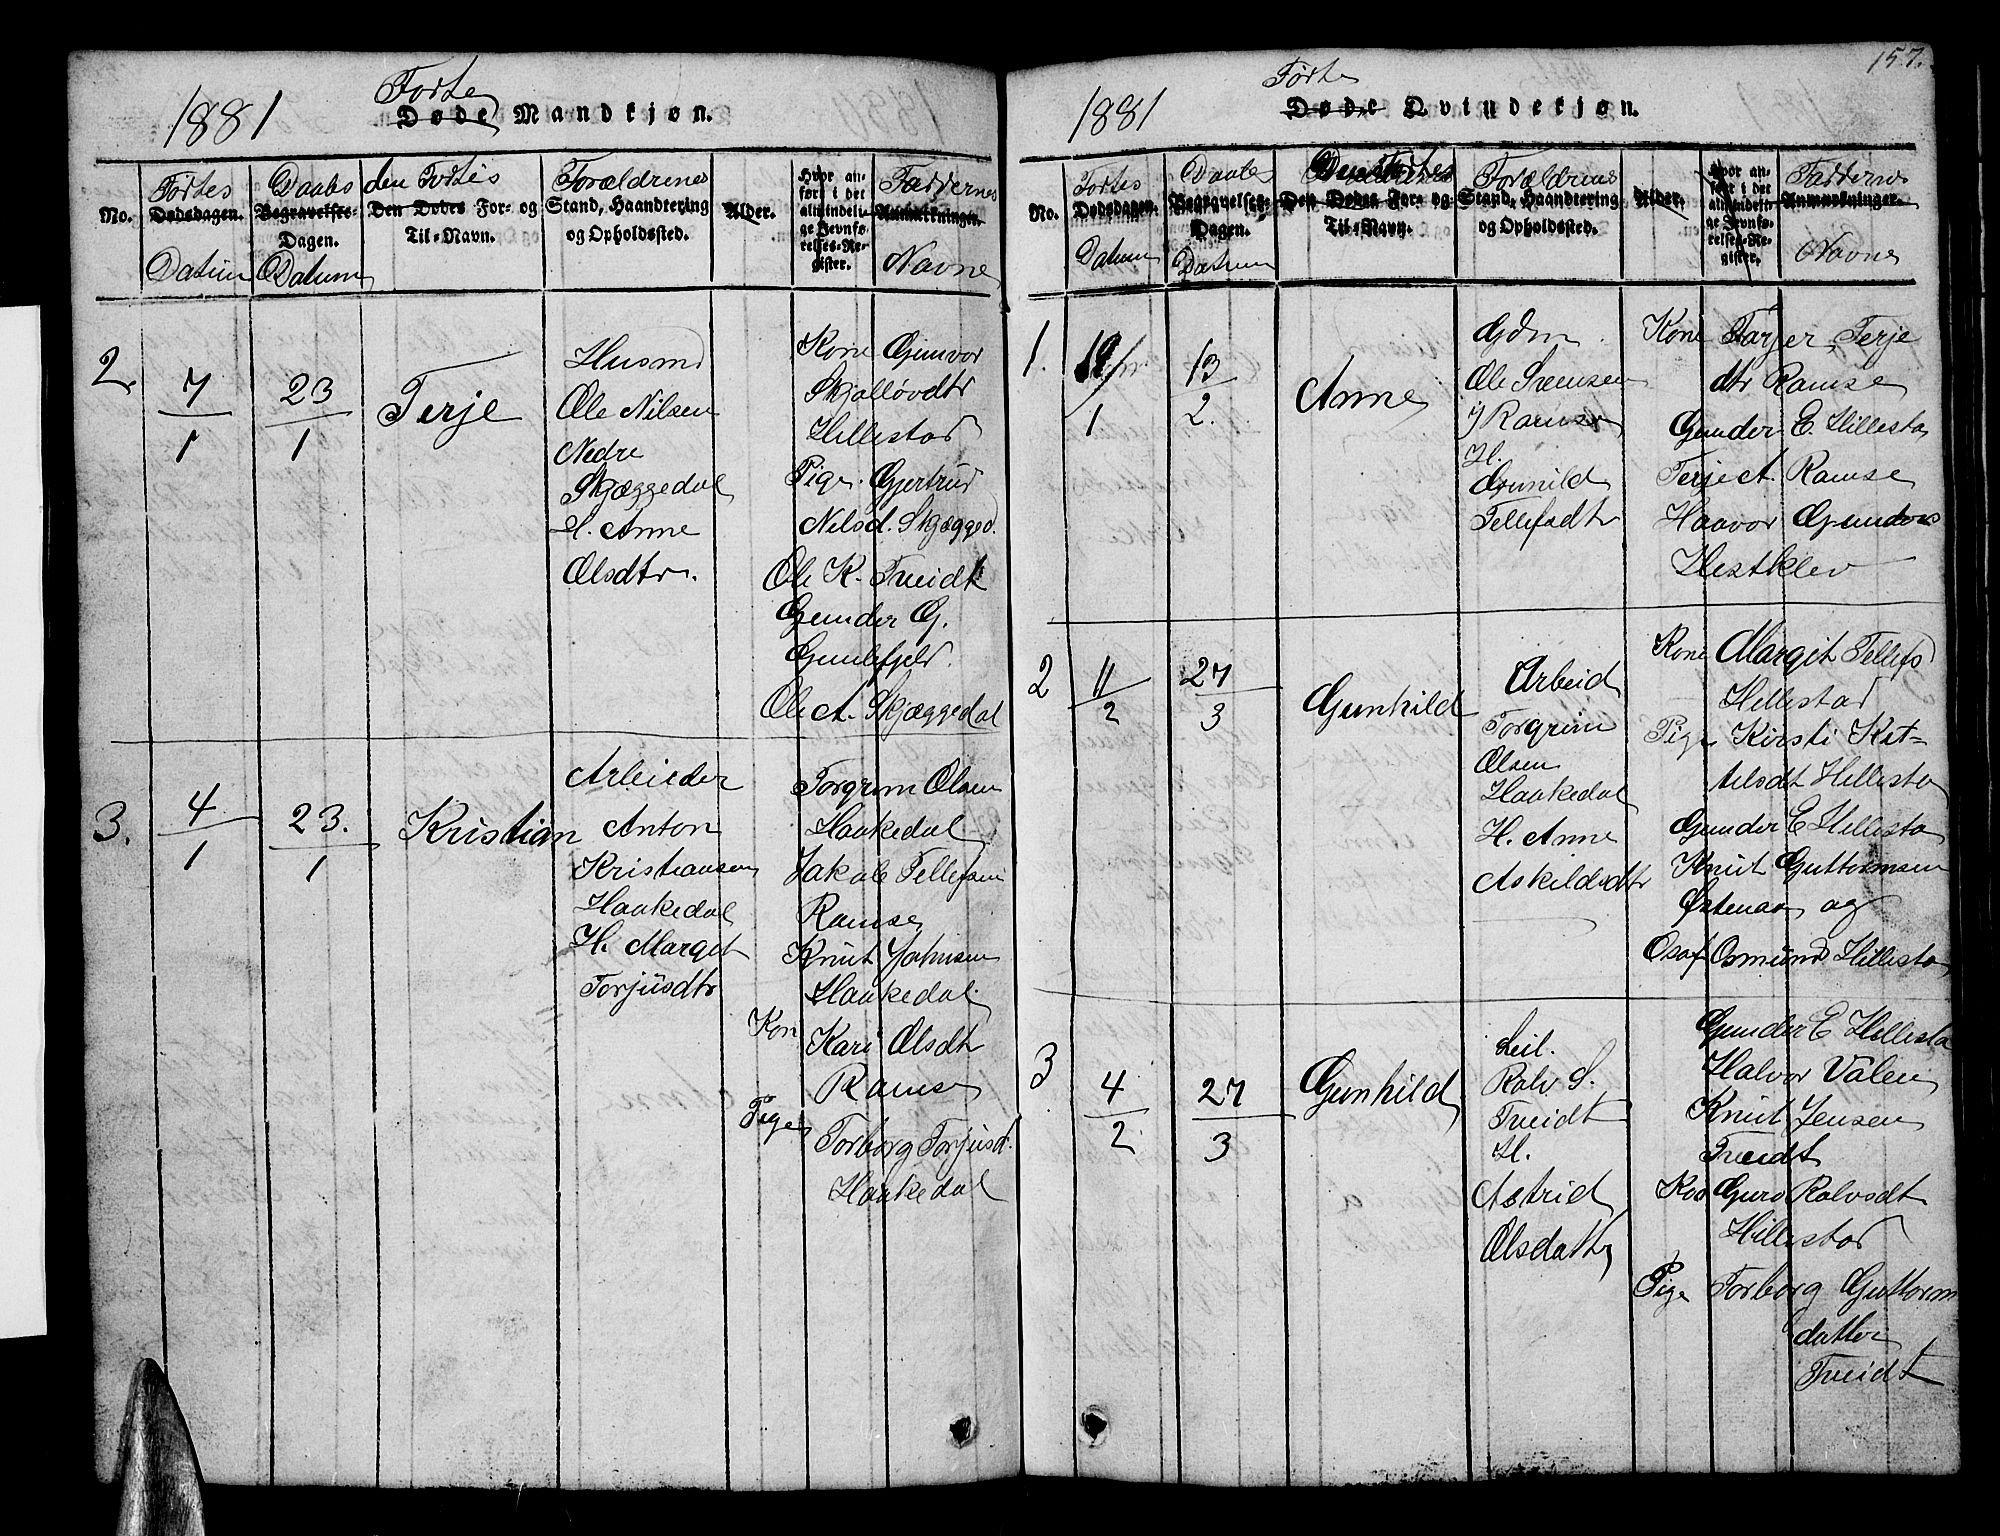 1881
Førte
Døde Mandkjøn.
No.
Førtes
Dødsdagen.
Datum
Daabs
Begravelses-
Dagen.
Datum
den Førtes
Den Dødes For- og
Til-Navn.
Forældrenes
Stand, Haandtering
og Opholdssted.
Alder.
Hvor an-
ført i det
almindeli-
ge Jevnfø-
relses-Re-
gister.
Faddernes
Anmærkninger.
Navne
2.
7
1
23
1
Terje
Husmd
Ole Nilsen
Nedre
Skjæggedal
H. Anne
Olsdtr.
Kone Gunvor
Hillestad
Pige. Gjertrud
Nilsd. Skjægged.
Ole K. Tveidt
Gunder G.
Gunlefjeld.
Ole A. Skjæggedal
3.
4
1
23.
1
Kristian
Arbeider
Anton
Kristiansen
Haakedal
H. Margit
Torjüsdtr
Torgrim Olsen
Haakedal
Jakob Tellefsen
Ramse
Knut Johnsen
Haakedal.
Kon
Kari Olsdt
Ramse
Pige
Torborg Torjusd.
Haakedal
157.
1881
Førte
Døde Qvindekjøn.
No.
Førtes
Dødsdagen.
Datum
Daabs
Begravelses-
Dagen.
Datum
Den Førtes
Den Dødes For- og
Til-Navn.
Forældrenes
Stand, Haandtering
og Opholdssted.
Alder.
Hvor an-
ført i det
almindeli-
ge Jevnfø-
relses-Re-
gister.
Faddernes
Anmærkninger.
Navne
1.
1
13
2.
Anne
Gdm.
Ole Svensen
Ramse
H.
Gunild
Tellefsdtr
Kone Tarjer Terje
dtr Ramse
Gunder E. Hillesta
Terje A. Ramse
Haavor Gunders
Hestklev
2
11
2
27
3
Gunhild
Arbeid
Torgrim
Olsen
Haakedal
H. Anne
Askildsdtr
Kone Margit Tellefsd
Hillestad
Pige Kirsti Ket-
telsdt Hillesta
Gunder E Hillesta
Knut Guttormsen
Østenaa og
Osmund Hillesta
3
4
2
27
3
Gunhild
Leil.
Rolv S.
Tveidt
H.
Astrid
Olsdatte
Gunder E Hillesta
Halvor Valen
Knut Jensen
Tveidt
Kon Guro Rolvsdt
Hillestad
Pige Torborg Guttorm
datter
Tveidt